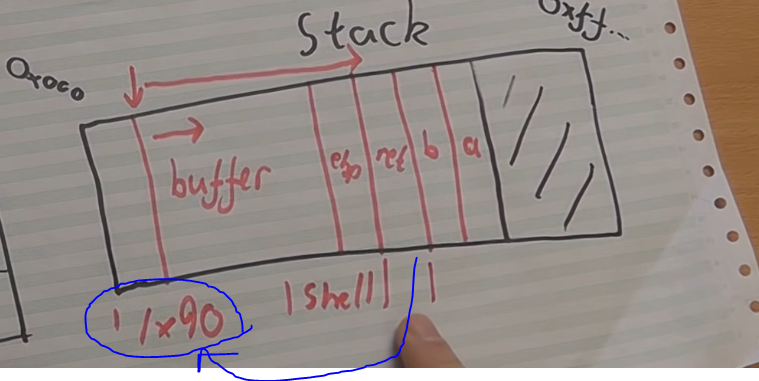 Stack
0xff...
0x000
buffer
ebp
ret
b
a
\x90
|shell|
|